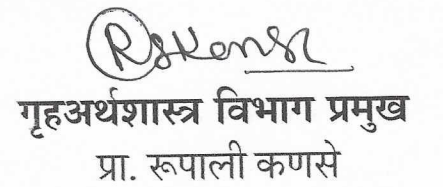 RSKanse
गृहअर्थशास्त्र विभाग प्रमुख
प्रा. रूपाली कणसे